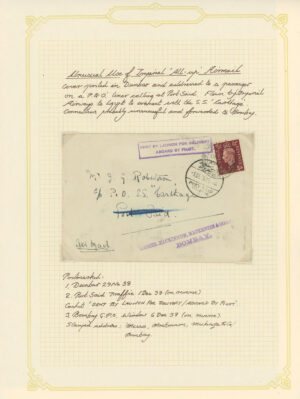 Unusual Use of Imperial "All-up" Airmail
cover posted in Dunbar and addressed to a passenger
on a P.&O. liner calling at Port Said. Flown by Imperial
Airways to Egypt to connect with the S.S. "Carthage"
Connection probably unsuccessful and forwarded to Bombay.
SENT BY LAUNCH FOR DELIVERY
ABOARD BY PILOT.
Mr J. G. Robertson
c/o P. & O. SS. "Carthage"
Port Said
By Air Mail
MACKENZIE
BOMBAY.
Postmarked:
1. Dunbar 29 No 38
2. Port Said Traffic 1 Dec 38 (on reverse)
Cachet "SENT BY LAUNCH FOR DELIVERY/ABOARD BY PILOT"
3. Bombay G.P.O. Window 6 Dec 38 (on reverse)
Stamped address: Messrs. Mackinnon, Mackenzie & Co
Bombay